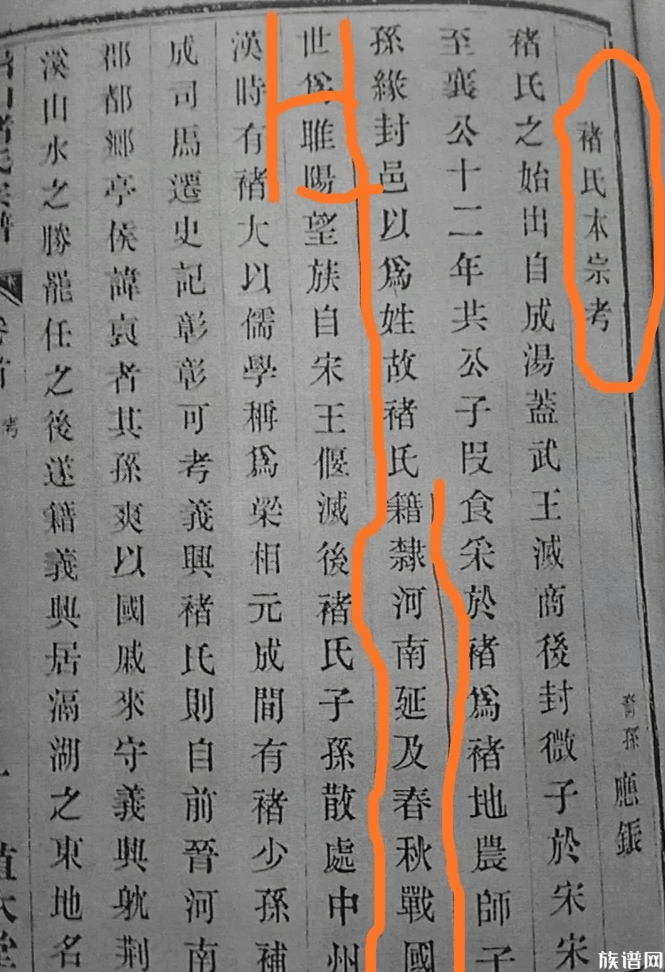 褚氏本宗考
裔孫應
褚氏之始出自成湯蓋武王滅商後封微子於宋宋
至襄公十二年共公子段食采於褚爲褚地農師子
孫緣封邑以爲姓故褚氏籍隸河南延及春秋戰國
世爲睢陽望族自宋王偃滅後褚氏子孫散處中州
漢時有褚大以儒學稱爲梁相元成間有褚少孫補
成司馬遷史記彰彰可考義興褚氏則自前晉河南
郡都鄉亭侯諱裒者其孫爽以國戚來守義興躭荆
溪山水之勝罷任之後遂籍義興居滆湖之東地名
褚氏宗譜
卷首
考
族谱网
www.zupu.cn